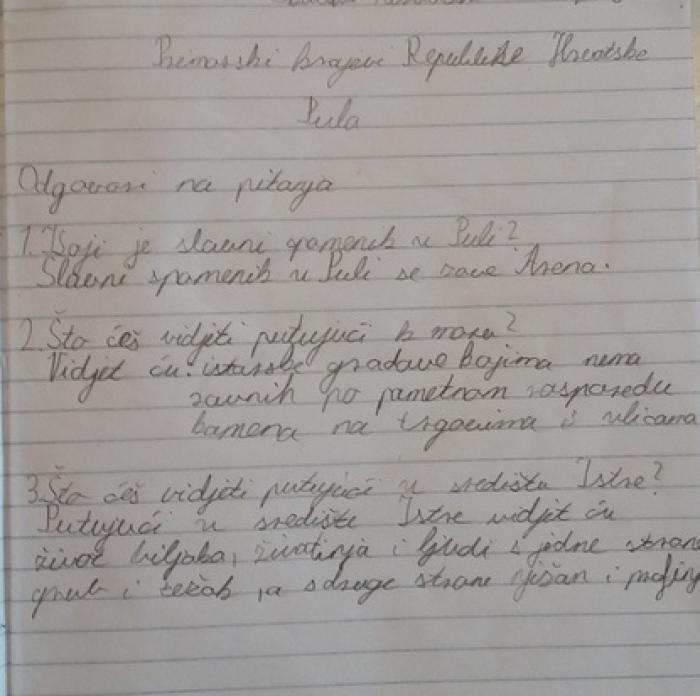 Primorski krajevi Republike Hrvatske
Pula
Odgovori na pitanja
1. Koji je slavni spomenik u Puli?
Slavni spomenik u Puli se zove Arena.
2. Što ćeš vidjeti putujući k moru?
Vidjet ću: istarske gradove kojima nema
ravnih po pametnom rasporedu
kamena na trgovima i ulicama
3. Što ćeš vidjeti putujući u središte Istre?
Putujući u središte Istre vidjet ću
život biljaka, životinja i ljudi s jedne strane
grub i težak, a s druge strane nježan i